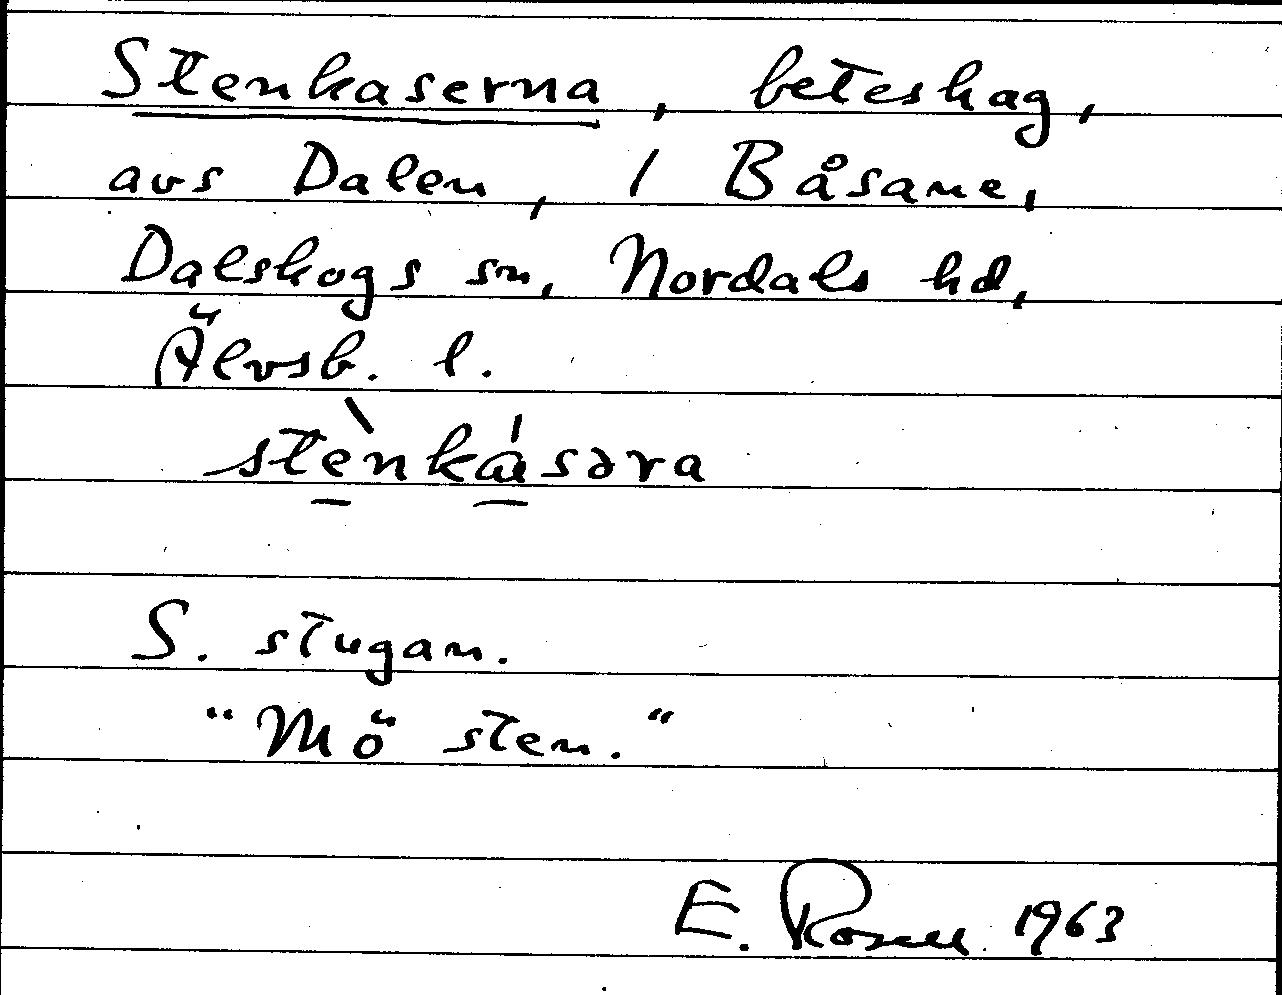 Stenkaserna, beteshag,
avs Dalen, 1 Båsane,
Dalskogs sn, Nordals hd,
Älvsb. l.
stènká̱səra
S. stugan.
"Mö sten."
E. Rosell 1963